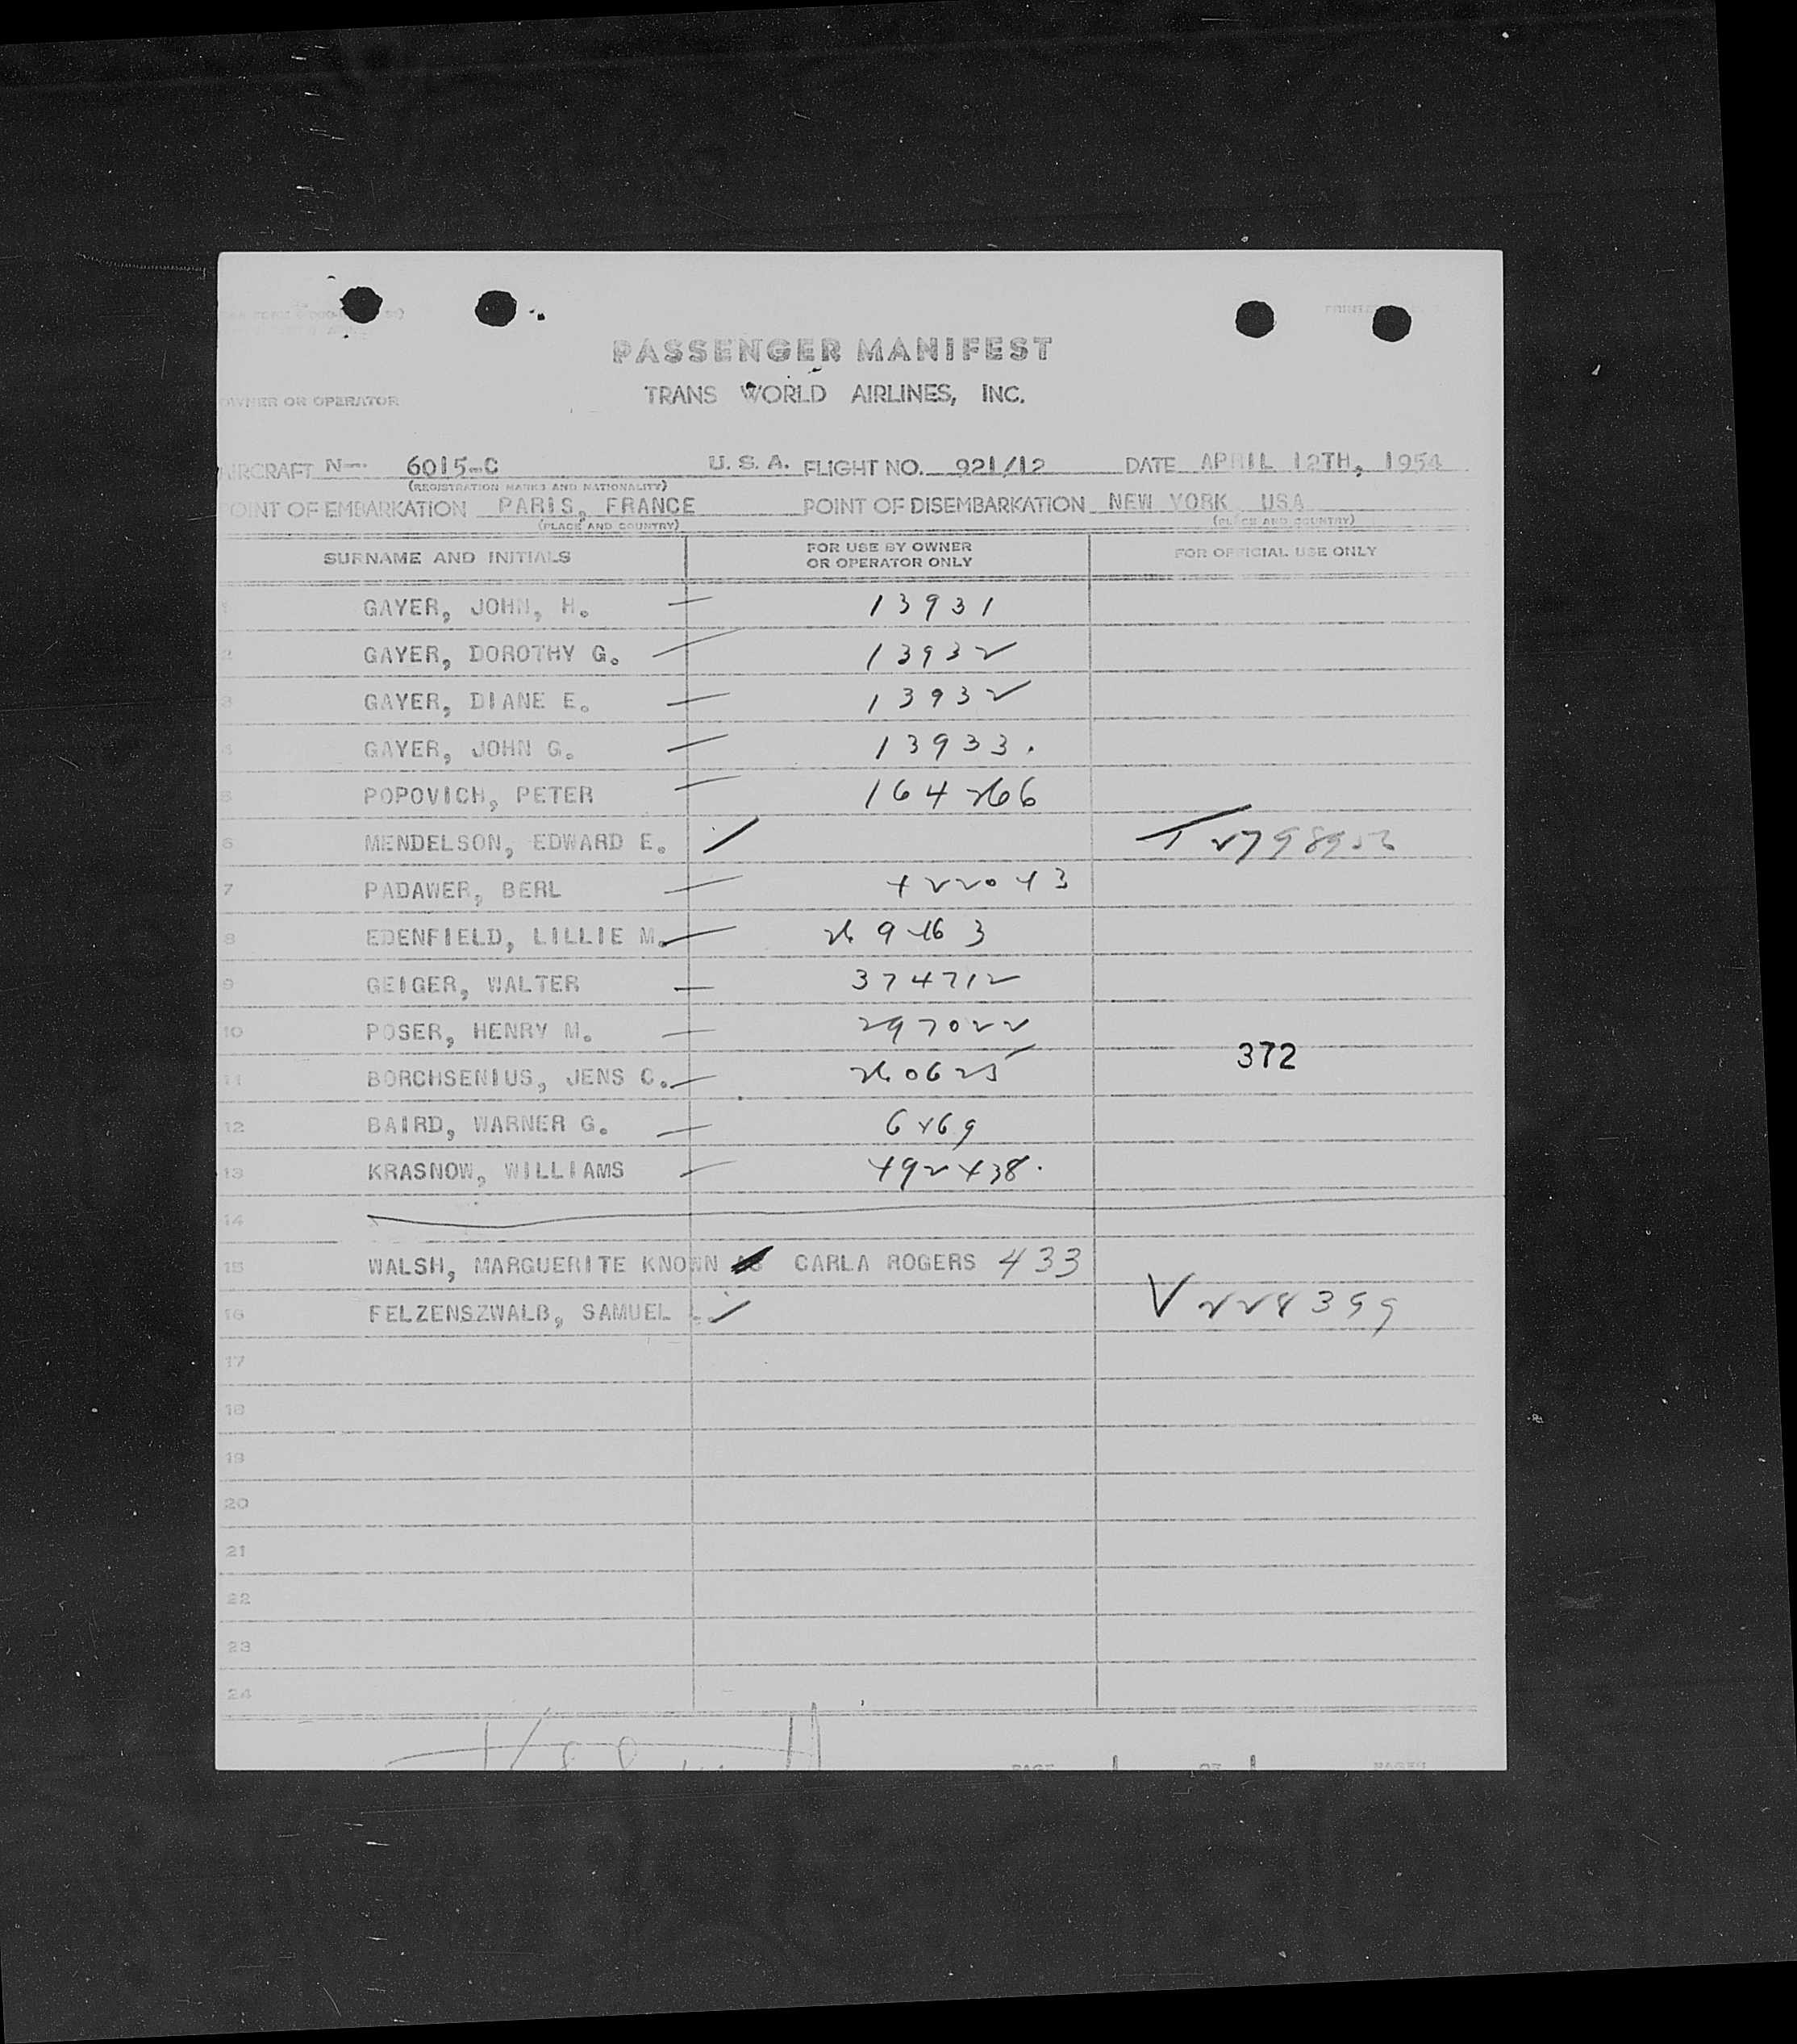 PASSENGER MANIFEST
OWNER OR OPERATOR TRANS WORLD AIRLINES, INC.
AIRCRAFT N-- 6015-C U. S. A. FLIGHT NO. 921/12 DATE APRIL 12TH, 1954
(REGISTRATION MARKS AND NATIONALITY)
POINT OF EMBARKATION PARIS, FRANCE POINT OF DISEMBARKATION NEW YORK USA
(PLACE AND COUNTRY) (PLACE AND COUNTRY)
SURNAME AND INITIALS FOR USE BY OWNER OR OPERATOR ONLY FOR OFFICIAL USE ONLY
1 GAYER, JOHN, H. — 13931
2 GAYER, DOROTHY G. — 13932
3 GAYER, DIANE E. — 13932
4 GAYER, JOHN G. — 13933.
5 POPOVICH, PETER — 164266
6 MENDELSON, EDWARD E.
7 PADAWER, BERL — 422043
8 EDENFIELD, LILLIE M. —
9 GEIGER, WALTER — 374712
10 POSER, HENRY M. — 297022
372
11 BORCHSENIUS, JENS C. — 260625
12 BAIRD, WARNER G. — 6269
13 KRASNOW, WILLIAMS — 492438.
14
15 WALSH, MARGUERITE KNOWN AS CARLA ROGERS 433
16 FELZENSZWALB, SAMUEL V 2283 99
17
18
19
20
21
22
23
24
PAGE 1 OF 1 PAGES